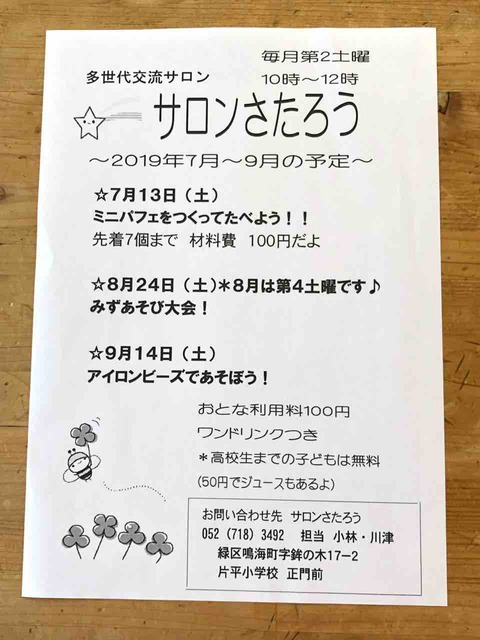 毎月第2土曜
多世代交流サロン 10時～12時
サロンさたろう
～2019年7月～9月の予定～
☆7月13日（土）
ミニパフェをつくってたべよう！！
先着7個まで 材料費 100円だよ
☆8月24日（土）＊8月は第4土曜です♪
みずあそび大会！
☆9月14日（土）
アイロンビーズであそぼう！
おとな利用料100円
ワンドリンクつき
＊高校生までの子どもは無料
（50円でジュースもあるよ）
お問い合わせ先 サロンさたろう
052（718）3492 担当 小林・川津
緑区鳴海町字鉾の木17－2
片平小学校 正門前